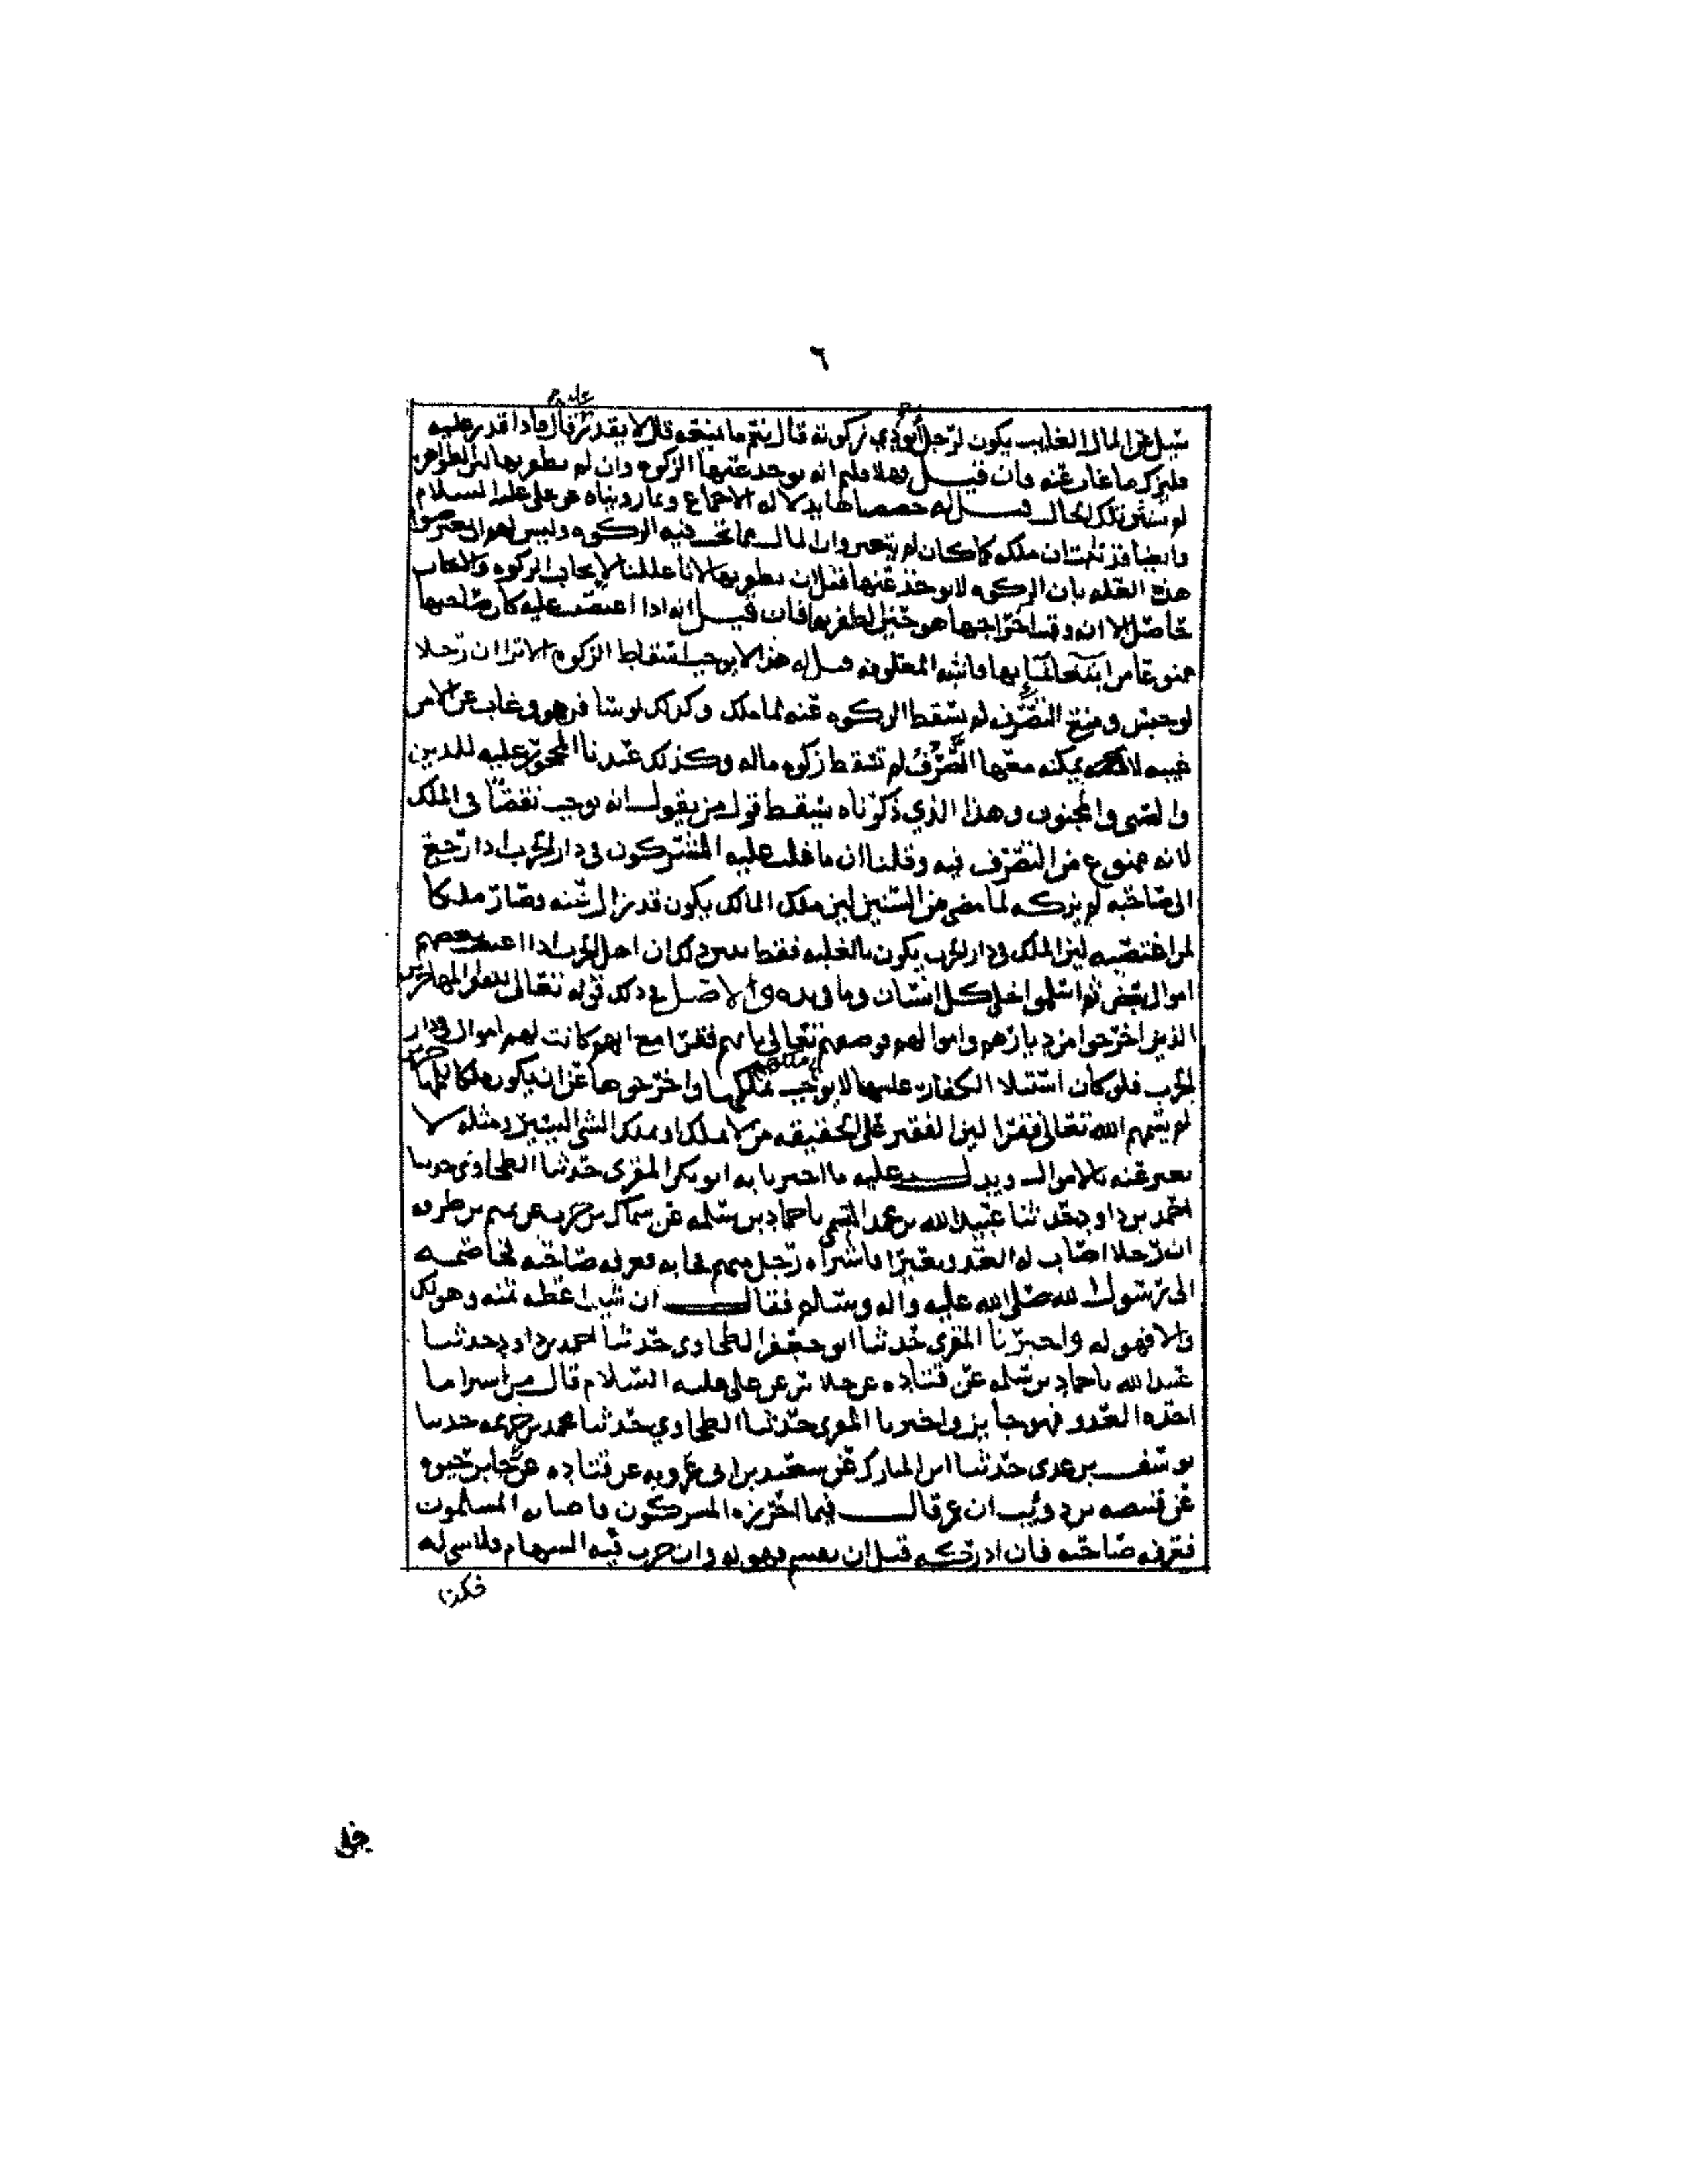 ٦
سئل عن المال الغايب يكون لرجل أيؤدي زكوته قال نعم ما يمنعه قال لا يقدر عليه قال فاذا قدر عليه
فليزك ما غاب عنه فان قيل فهلا قلتم انه يوخذ عنها الزكوه وان لم يظفر بها لان الظواهر
لم تستثن تلك الحال قيل له خصصناها بدلالة الاجماع وبما رويناه عن علي عليه السلام
وايضا فقد ثبت ان ملكه كما كان لم يتغير وان المال مما تجب فيه الزكوه وليس لهم ان يعترضوا
هذه العله بان الزكوه لا يوخذ عنها قبل ان يظفر بها لانا عللنا لايجاب الزكوه والايجاب
حاصل الا ان وقت اخراجها هو حين يظفر بها فان قيل انه اذا اغتصب عليه كان صاحبها
ممنوعا من ابتغا النما بها فاشبه المعلوفه قيل له هذا لا يوجب اسقاط الزكوه الا ترا ان رجلا
لو حبس ومنع التصرف لم يسقط الزكوه عنه لما ملك وكذلك لو سافر هو وغاب عن الامر
غيبه لا يمكنه معها التصرف لم تسقط زكوه ماله وكذلك عندنا المحجور عليه للدين
والصبي والمجنون وهذا الذي ذكرناه يسقط قول من يقول انه يوجب نقضا في الملك
لانه ممنوع من التصرف فيه وقلنا ان ما غلب عليه المشركون في دار الحرب اذا رجع
الى صاحبه لم يزكه لما مضى من السنين لان ملك المالك يكون قد زال عنه وصار ملكا
لمن اغتصبه لان الملك في دار الحرب يكون بالغلبه فقط يبين ذلك ان اهل الحرب اذا اغتصب بعضهم
اموال بعض ثم اسلموا خلي كل انسان وما في يده والاصل في ذلك قوله تعالى للفقرا المهاجرين
الذين اخرجوا من ديارهم واموالهم فوصفهم تعالى بانهم فقرا مع انهم كانت لهم اموال في دار
الحرب فلو كان استيلا الكفار عليها لا يوجب تملكها واخرجوها عن ان يكون ملكا لهم
لم يسمهم الله تعالى فقرا لان الفقير على الحقيقه من لا يملك او يملك الشي اليسير ومثله لا
يعبر عنه بالاموال ويدل عليه ما اخبرنا به ابو بكر المقري حدثنا الطحاوي حدثنا
احمد بن داود حدثنا عبيد الله بن محمد التيمي نا حماد بن سلمه عن سماك بن حرب عن تميم بن طرفه
ان رجلا اصاب له العدو بعيرا فاشتراه رجل منهم فجا به فعرفه صاحبه فخاصمه
الى رسول الله صلى الله عليه واله وسلم فقال ان شيت اعطه ثمنه وهو لك
والا فهو له واخبرنا المقري حدثنا ابو جعفر الطحاوي حدثنا احمد بن داود حدثنا
عبيد الله نا حماد بن سلمه عن قتاده عن خلاس عن علي عليه السلام قال من اشترا ما
اخذه العدو فهو جايز واخبرنا المقري حدثنا الطحاوي حدثنا محمد بن خزيمه حدثنا
يوسف بن عدي حدثنا ابن المبارك عن سعيد بن ابي عروبه عن قتاده عن رجا بن حيوه
عن قبيصه بن ذويب ان عمر قال فيما احرزه المشركون فاصابه المسلمون
فعرفه صاحبه فان ادركه قبل ان يقسم فهو له وان جرت فيه السهام فلا شي له